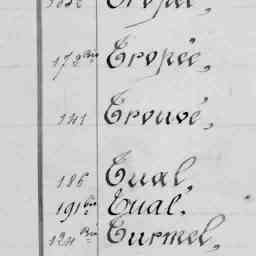 Tropée,
172 bis Tropée,
141 Trouvé,
186 Tual,
191 bis Tual.
124 bis Turmel,